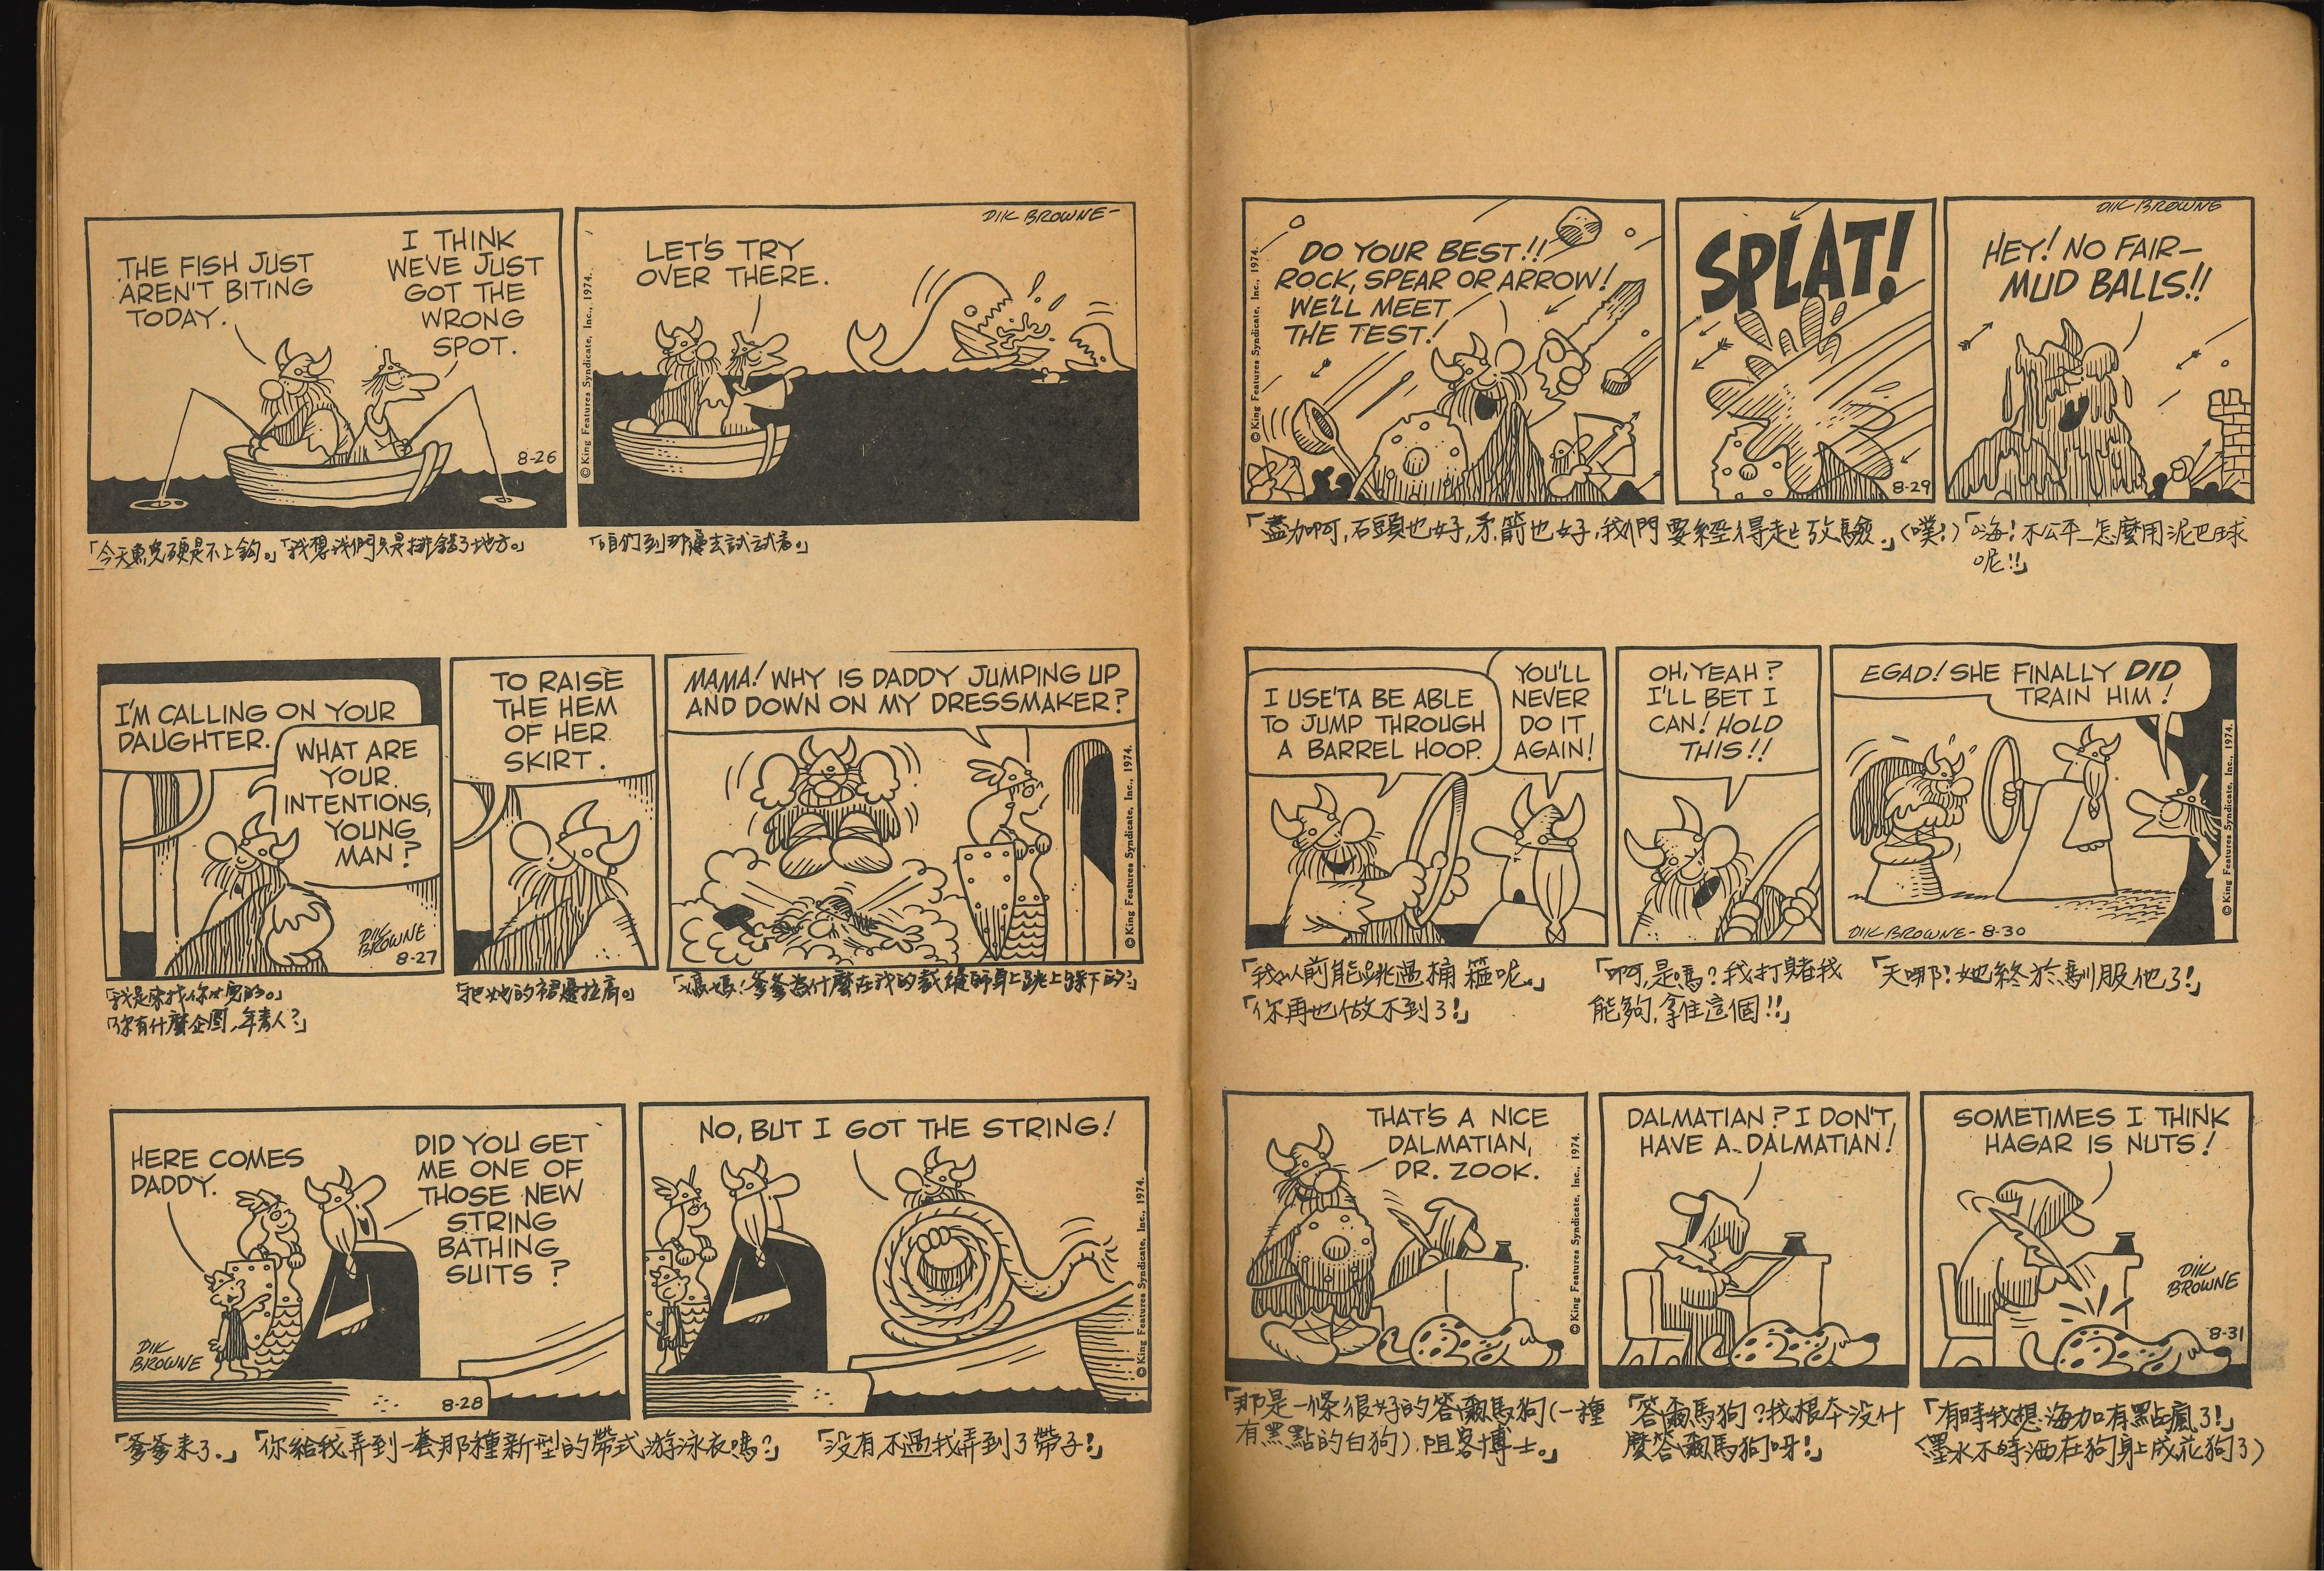 THE FISH JUST
AREN'T BITING
TODAY.
I THINK
WE'VE JUST
GOT THE
WRONG
SPOT.
8-26
© King Features Syndicate, Inc., 1974.
LET'S TRY
OVER THERE.
DIK BROWNE-
「今天魚兒硬是不上鈎。」「我想我們只是排錯了地方。」
「咱們到那邊去試試看。」
I'M CALLING ON YOUR
DAUGHTER.
WHAT ARE
YOUR
INTENTIONS,
YOUNG
MAN?
DIK
BROWNE
8-27
TO RAISE
THE HEM
OF HER
SKIRT.
MAMA! WHY IS DADDY JUMPING UP
AND DOWN ON MY DRESSMAKER?
© King Features Syndicate, Inc., 1974.
「我是來找你女兒的。」
「你有什麼企圖,年青人?」
「把她的裙邊拉高。」
「媽媽!爹爹為什麼在我的裁縫師身上跳上跳下的?」
HERE COMES
DADDY.
DID YOU GET
ME ONE OF
THOSE NEW
STRING
BATHING
SUITS?
DIK
BROWNE
8-28
NO, BUT I GOT THE STRING!
© King Features Syndicate, Inc., 1974.
「爹爹來了.」「你給我弄到一套那種新型的帶式游泳衣嗎?」
「没有不過我弄到了帶子!」
© King Features Syndicate, Inc., 1974.
DO YOUR BEST!!
ROCK, SPEAR OR ARROW!
WE'LL MEET
THE TEST!
SPLAT!
8-29
DIK BROWNE
HEY! NO FAIR—
MUD BALLS!!
「盡力啊,石頭也好,矛.箭也好,我們要經得起攷驗.」(噗!)「嗨!不公平_怎麼用泥巴球
呢!!」
I USE'TA BE ABLE
TO JUMP THROUGH
A BARREL HOOP.
YOU'LL
NEVER
DO IT
AGAIN!
OH, YEAH?
I'LL BET I
CAN! HOLD
THIS!!
EGAD! SHE FINALLY DID
TRAIN HIM!
DIK BROWNE- 8-30
© King Features Syndicate, Inc., 1974.
「我以前能跳過桶箍呢.」
「你再也做不到了!」
「啊,是嗎?我打賭我
能夠,拿住這個!!」
「天哪!她終於馴服他了!」
THAT'S A NICE
DALMATIAN,
DR. ZOOK.
© King Features Syndicate, Inc., 1974.
DALMATIAN? I DON'T
HAVE A DALMATIAN!
SOMETIMES I THINK
HAGAR IS NUTS!
DIK
BROWNE
8-31
「那是一條很好的答爾馬狗(一種
有黑點的白狗).阻客博士。」
「答爾馬狗?我根本没什
麼答爾馬狗呀!」
「有時我想海加有點瘋了!」
(墨水不時洒在狗身上成花狗了)